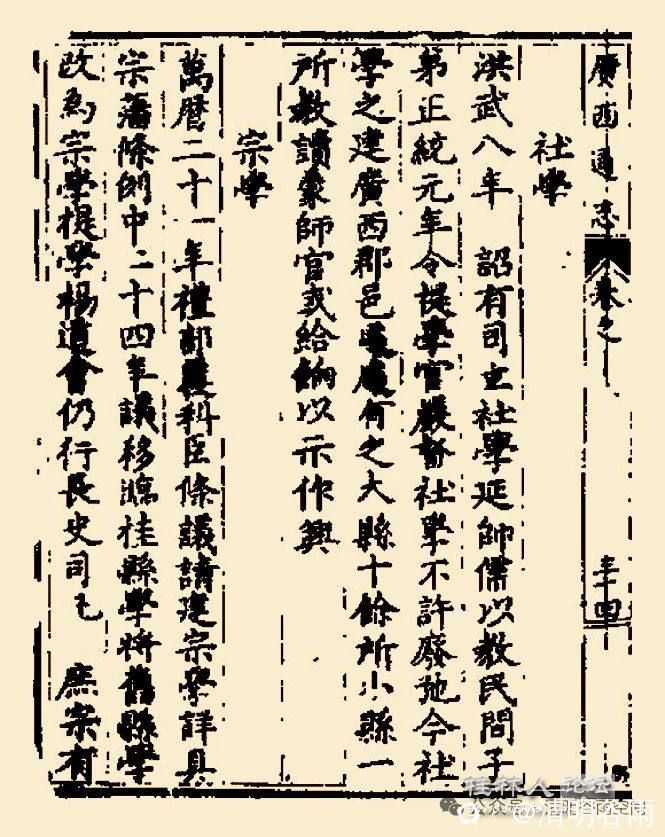 廣西通志 卷之
社學
洪武八年 詔有司立社學延師儒以教民間子
弟正統元年令提學官嚴督社學不許廢弛今社
學之建廣西郡邑處處有之大縣十餘所小縣一
所教讀蒙師官或給餉以示作興
宗學
萬曆二十一年禮部覆科臣條議請建宗學詳具
宗藩條例中二十四年議移臨桂縣學將舊縣學
改為宗學提學楊道會仍行長史司已 庶宗有
桂林人论坛
清明谷雨